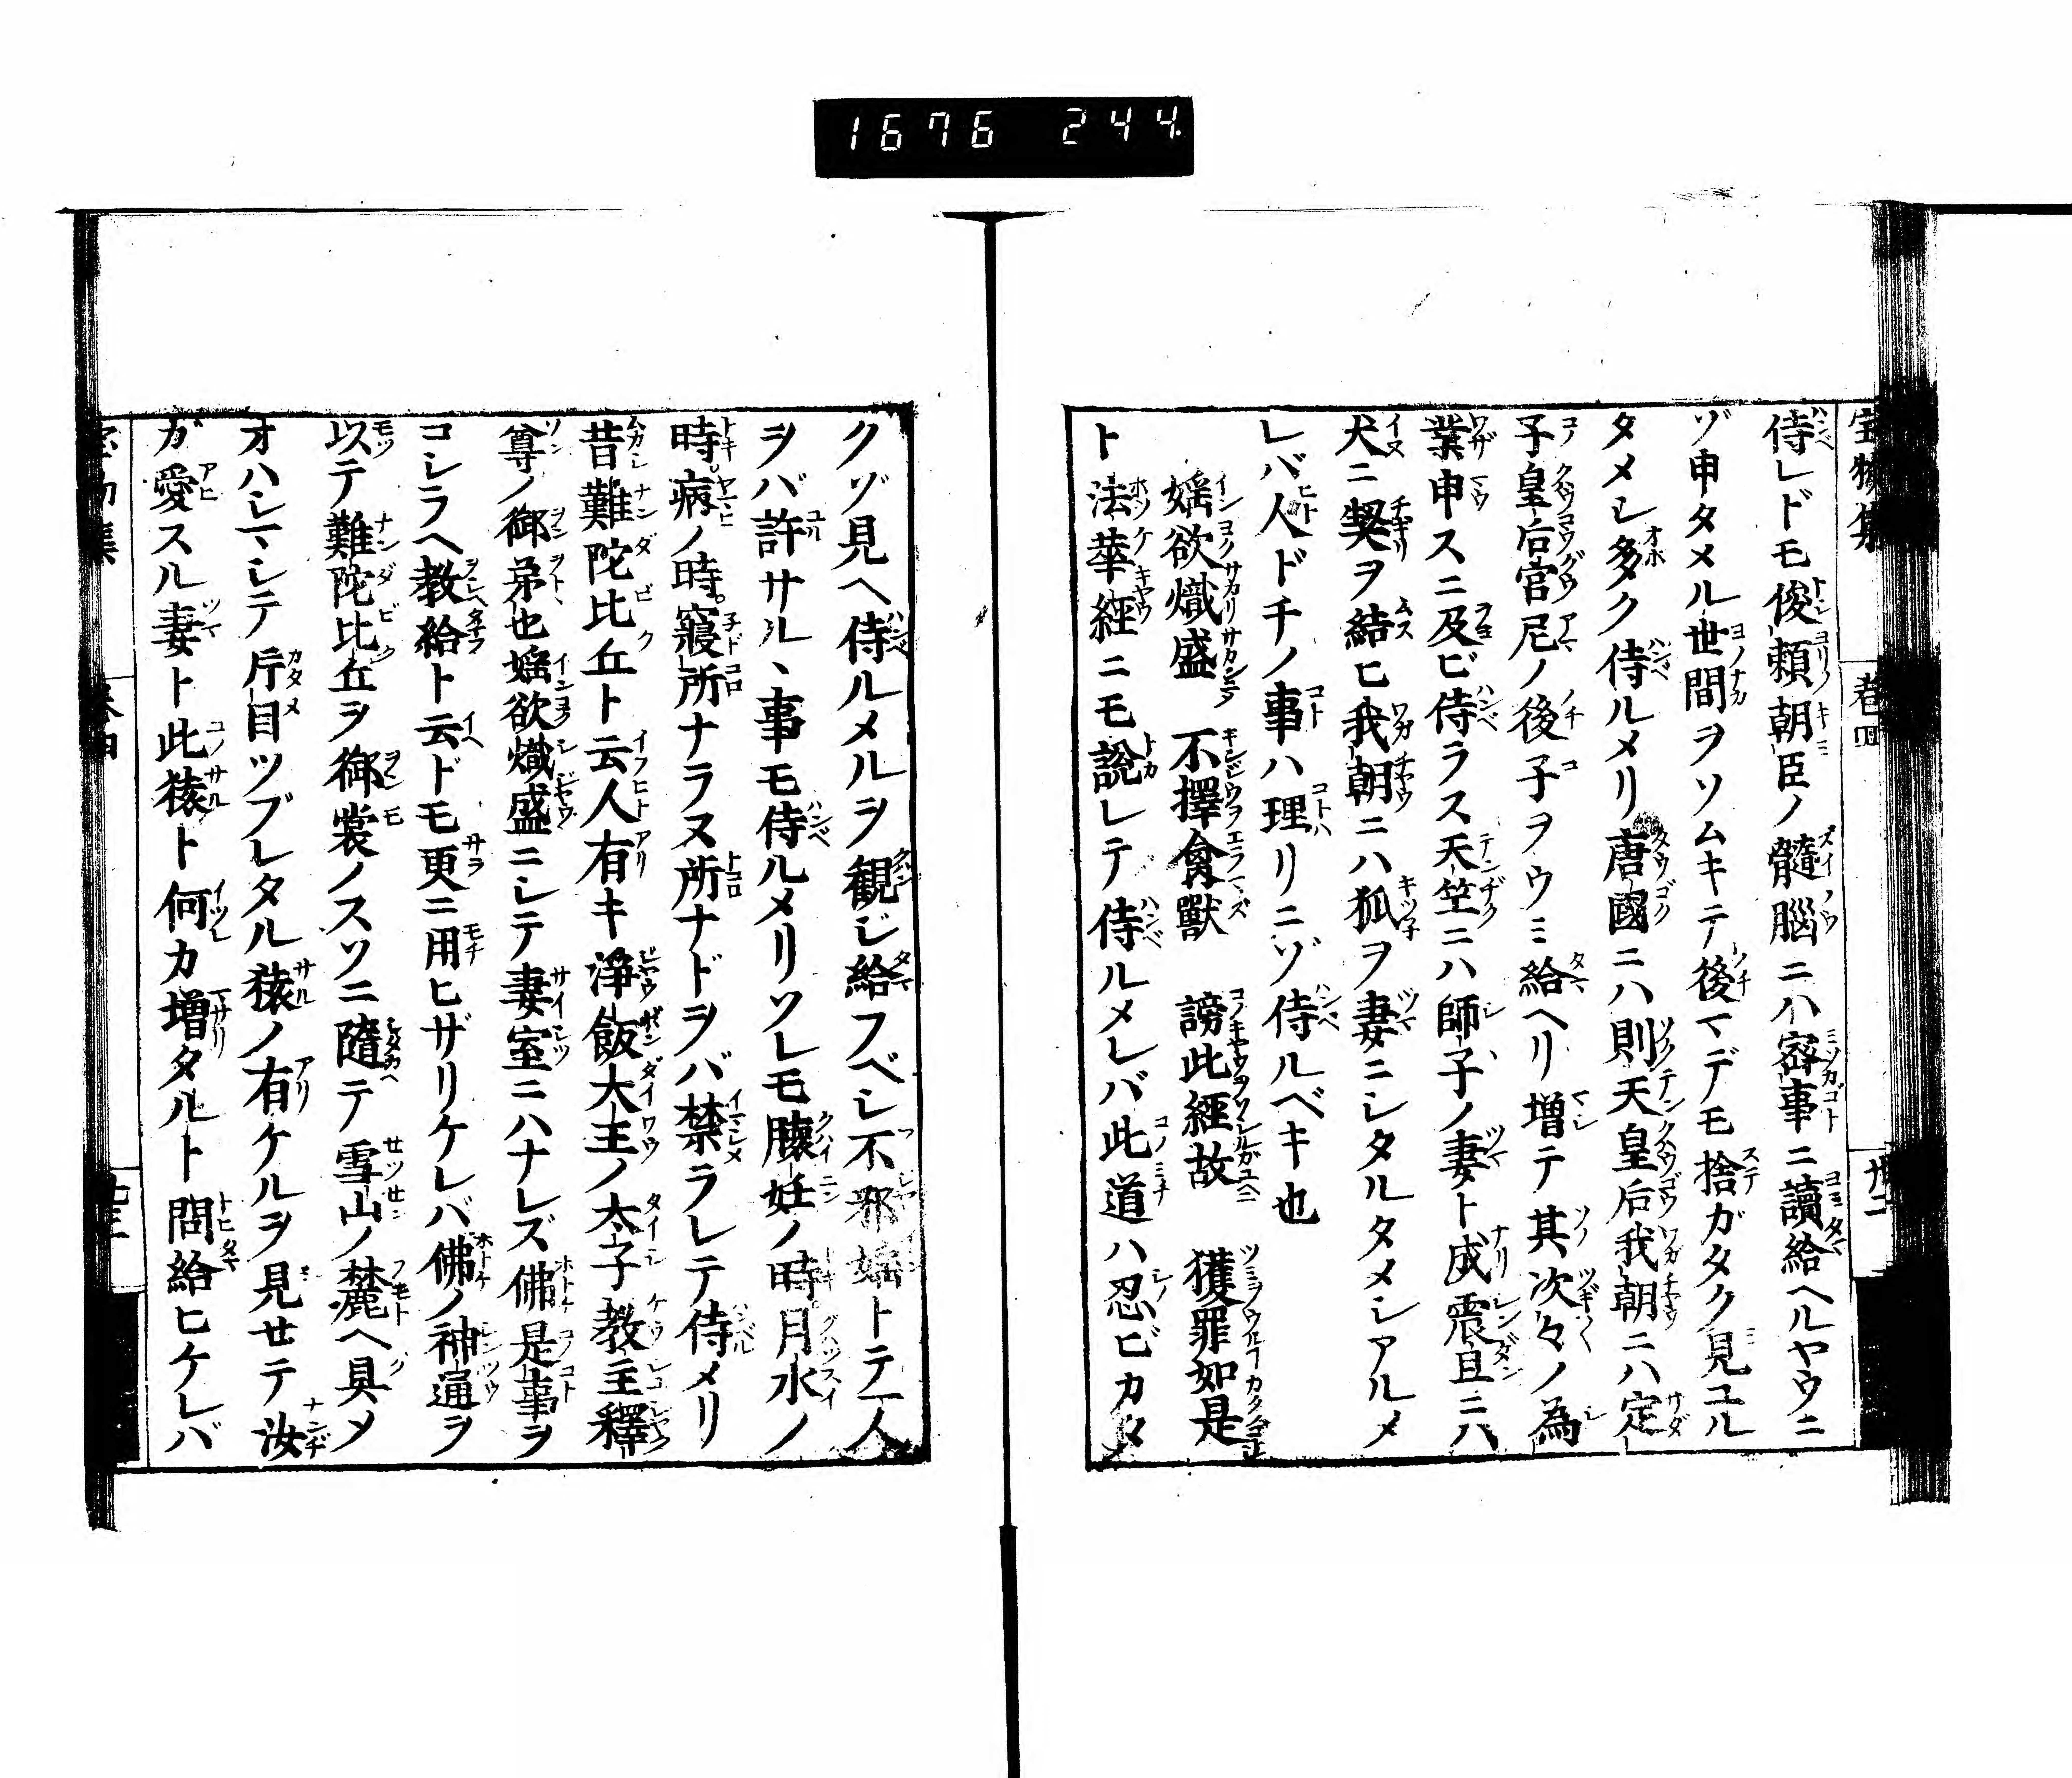 1676 244.
侍レドモ俊頼朝臣ノ髓腦ニハ密事ニ讀給ヘルヤウニ
ゾ申タメル世間ヲソムキテ後マデモ捨ガタク見ユル
タメシ多ク侍ルメリ唐國ニハ則天皇后我朝ニハ定
子皇后宮尼ノ後子ヲウミ給ヘリ増テ其次々ノ為
業申スニ及ビ侍ラス天竺ニハ師子ノ妻ト成震旦ニハ
犬ニ契ヲ結ヒ我朝ニハ狐ヲ妻ニシタルタメシアルメ
レバ人ドチノ事ハ理リニゾ侍ルベキ也
婬欲熾盛 不擇禽獸 謗此經故 獲罪如是
ト法華經ニモ說レテ侍ルメレバ此道ハ忍ビカタ
クゾ見ヘ侍ルメルヲ観ジ給フベシ不邪婬トテ一人
ヲバ許サルヽ事モ侍ルメリソレモ膁妊ノ時月水ノ
時。病ノ時。寢所ナラヌ所ナドヲバ禁ラレテ侍メリ
昔難陀比丘ト云人有キ淨飯大王ノ太子教主釋
尊ノ御弟也婬欲熾盛ニシテ妻室ニハナレズ佛是事ヲ
コシラヘ教給ト云ドモ更ニ用ヒザリケレバ佛ノ神通ヲ
以テ難陀比丘ヲ御裳ノスソニ隨テ雪山ノ麓ヘ具メ
オハシマシテ片目ツブレタル猿ノ有ケルヲ見せテ汝
ガ愛スル妻ト此猿ト何カ増タルト問給ヒケレバ